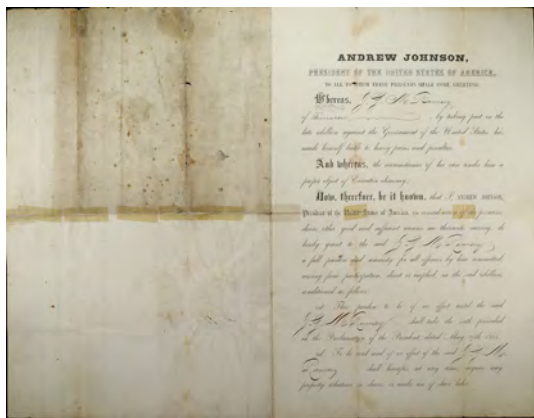 ANDREW JOHNSON,
PRESIDENT OF THE UNITED STATES OF AMERICA,
TO ALL TO WHOM THESE PRESENTS SHALL COME, GREETING:
Whereas, J. G. M. Ramsey
of Tennessee, by taking part in the
late rebellion against the Government of the United States has
made himself liable to heavy pains and penalties;
And whereas, the circumstances of his case render him a
proper object of Executive clemency;
Now, therefore, be it known, that I, ANDREW JOHNSON,
President of the United States of America, in consideration of the premises,
divers other good and sufficient reasons me thereunto moving, do
hereby grant to the said J. G. M. Ramsey
a full pardon and amnesty for all offences by him committed,
arising from participation, direct or implied, in the said rebellion,
conditioned as follows:
1st. This pardon to be of no effect until the said
J. G. M. Ramsey shall take the oath prescribed
in the Proclamation of the President, dated May 29th, 1865.
2d. To be void and of no effect if the said J. G. M.
Ramsey shall hereafter, at any time, acquire any
property whatever in slaves, or make use of slave labor.